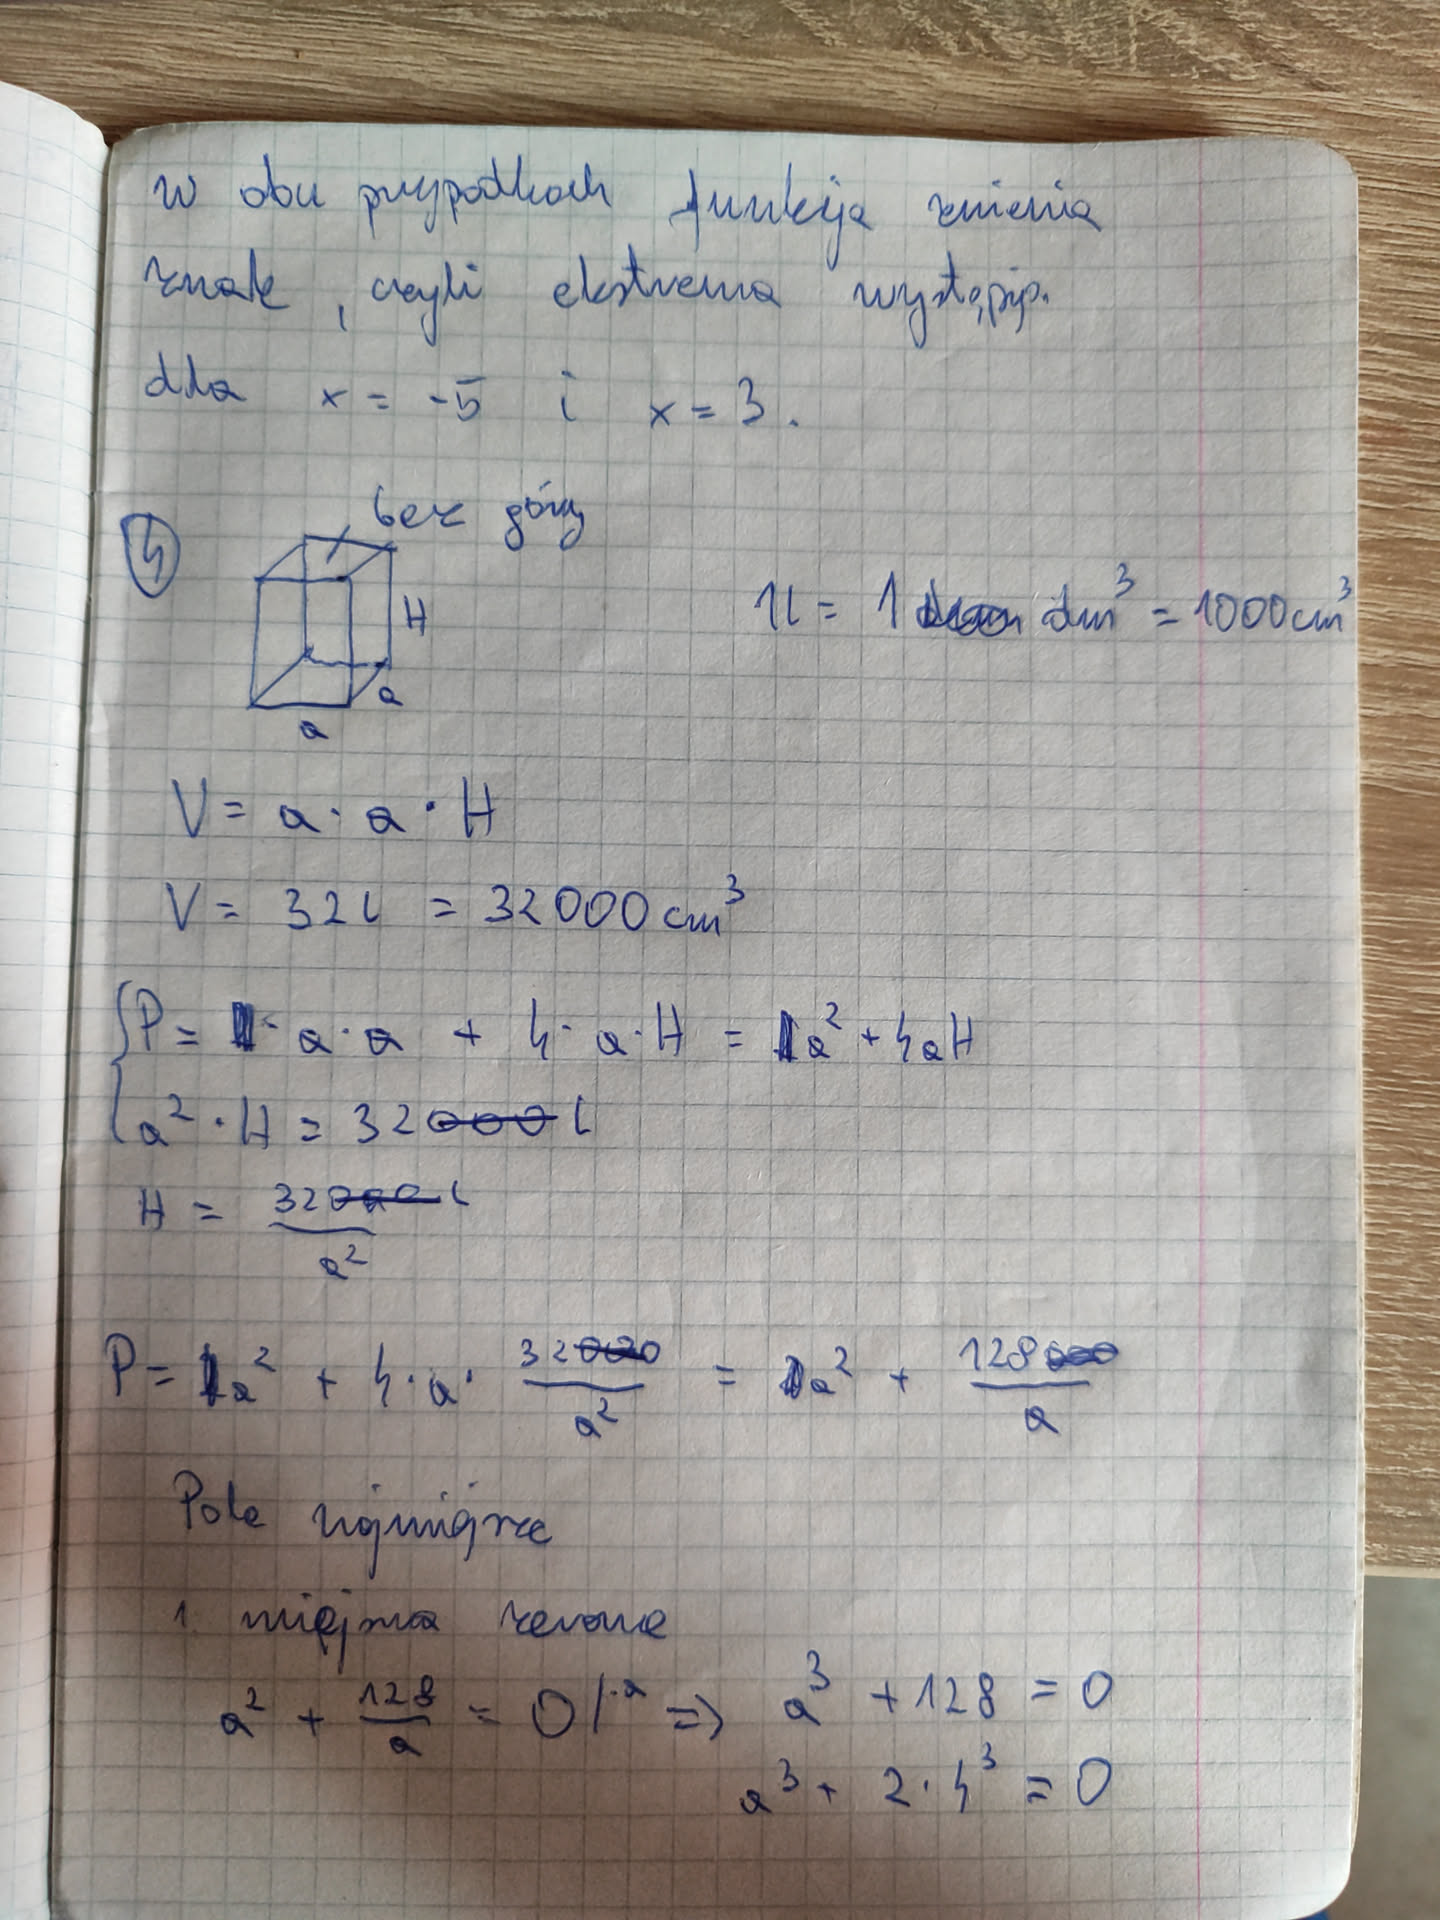 W obu przypadkach funkcja zmienia
znak, czyli ekstrema występują
dla x = -5 i x = 3.
④ bez góry
H
a
a
1l = 1 dm³ = 1000cm³
V = a · a · H
V = 32l = 32000 cm³
P = 1 · a · a + 4 · a · H = 1a² + 4aH
a² · H = 32 l
H = 32 l / a²
P = 1a² + 4 · a · 32 / a² = 1a² + 128 / a
Pole najmniejsze
1. miejsca zerowe
a² + 128 / a = 0 /·a ⇒ a³ + 128 = 0
a³ + 2 · 4³ = 0